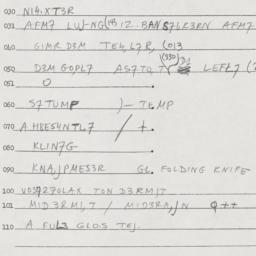 030 NI4.XT3R
031 AFM7 LU-NG(18)12.BANS7LR3RN AFM7
040 GIMR D3M TE4L7R, (013
050 D3M GOPL7 AS7TQ (330) LEFL7 (
051 0
060 S7TUMP )- TEMP
070 A.HBES4NTL7 / +.
080 KLIN7G
090 KNA,JPMES3R GL FOLDING KNIFE
100 VOS7270LAX TON D3RMIT
101 MID3RMI,T / MID3RA,JN Q++
110 A FUL3 GLOS TEJ.